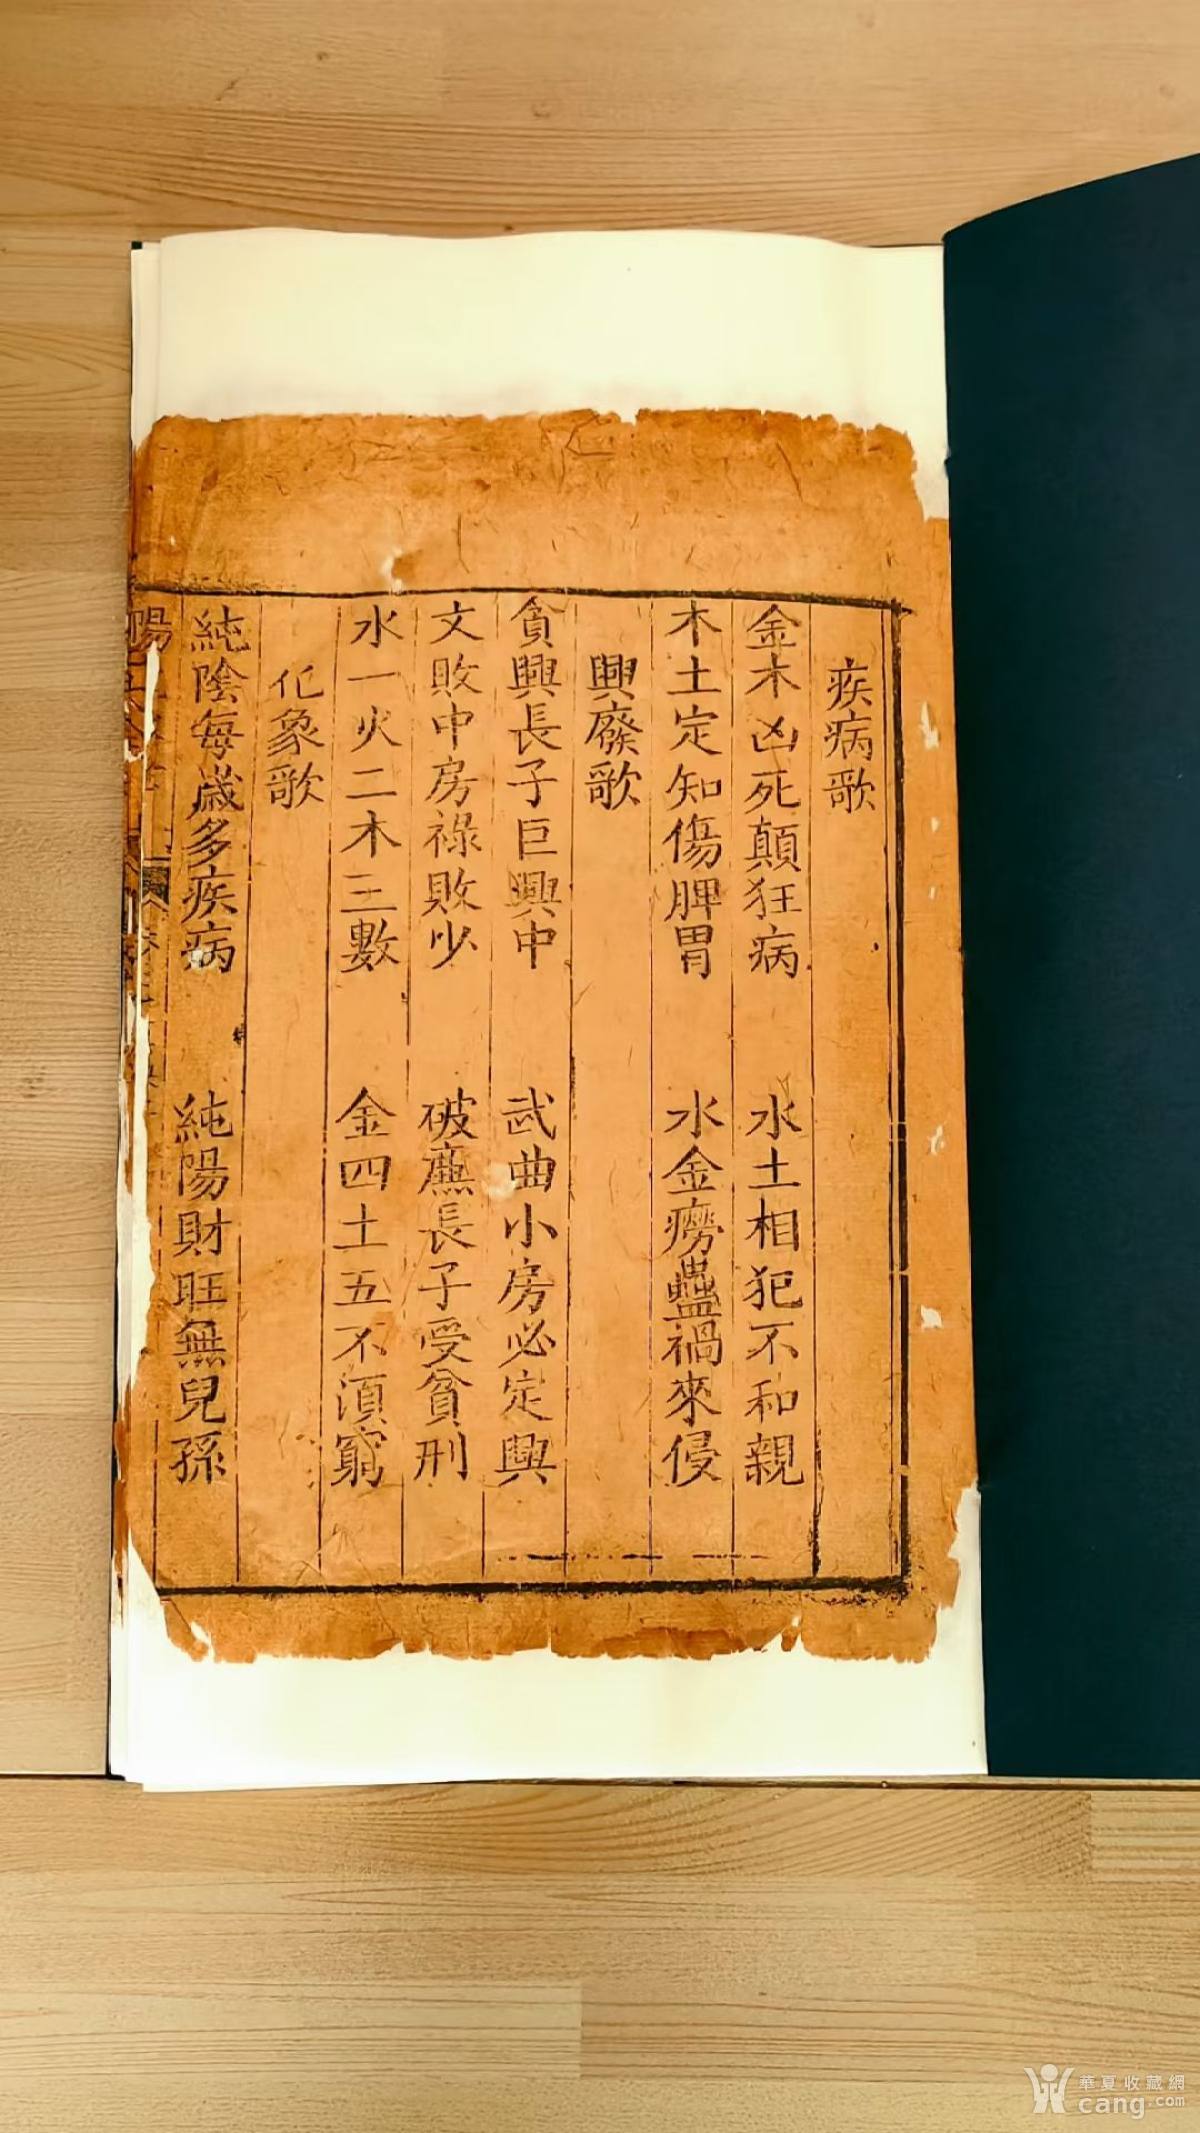 疾病歌
金木凶死顛狂病　水土相犯不和親
木土定知傷脾胃　水金癆蠱禍來侵
興廢歌
貪興長子巨興中　武曲小房必定興
文敗中房祿敗少　破廉長子受貧刑
水一火二木三數　金四土五不須窮
化象歌
純陰每歲多疾病　純陽財旺無兒孫
陽
華夏收藏網
cang.com